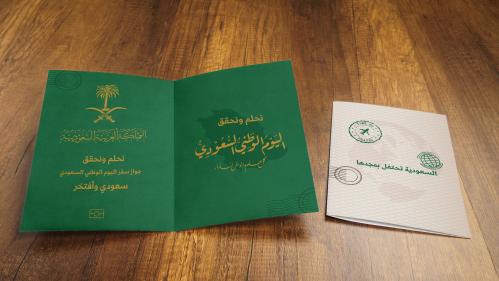 المملكة العربية السعودية
نحلم ونحقق
جواز سفر اليوم الوطني السعودي
سعودي وأفتخر
نحلم ونحقق
اليوم الوطني السعودي
السعودية تحتفل بمجدها